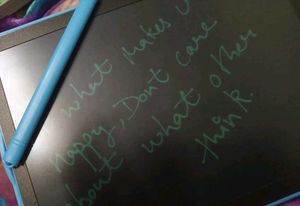 what makes u
Happy, Dont care
about what other
think.